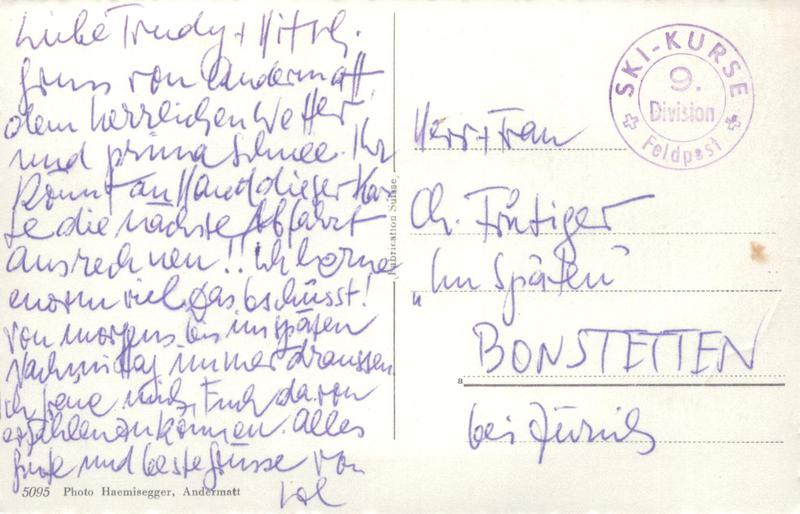 Liebe Trudy +
Gruss von Andermatt,
dem herrlichen Wetter
und prima Schnee. Ihr
könnt an Hand dieser Kar
te die nächste Abfahrt
ausrechnen!! Ich lerne
enorm viel. Das bschüsst!
von morgens bis im späten
Nachmittag immer draussen.
Ich freue mich, Euch davon
erzählen zu können. Alles
gute und beste Grüsse von
5095 Photo Haemisegger, Andermatt
Fabrication Suisse.
SKI-KURSE
9.
Division
Feldpost
Herr + Frau
Ch. Frutiger
„Im Späten"
BONSTETTEN
bei Zürich